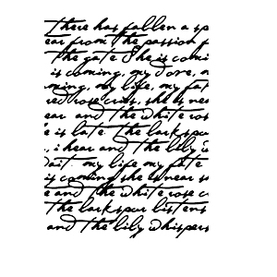 There has fallen a sp
ear from the passion f
the gate She is comi
is coming, my dove, m
ming, my life, my fat
red rose cries, she is nea
ear and the white rose
e is late The larkspur
, i hear and the lily w
ait my life my fate
is coming she is near s
e and the white rose c
the larkspur listens
and the lily whispers